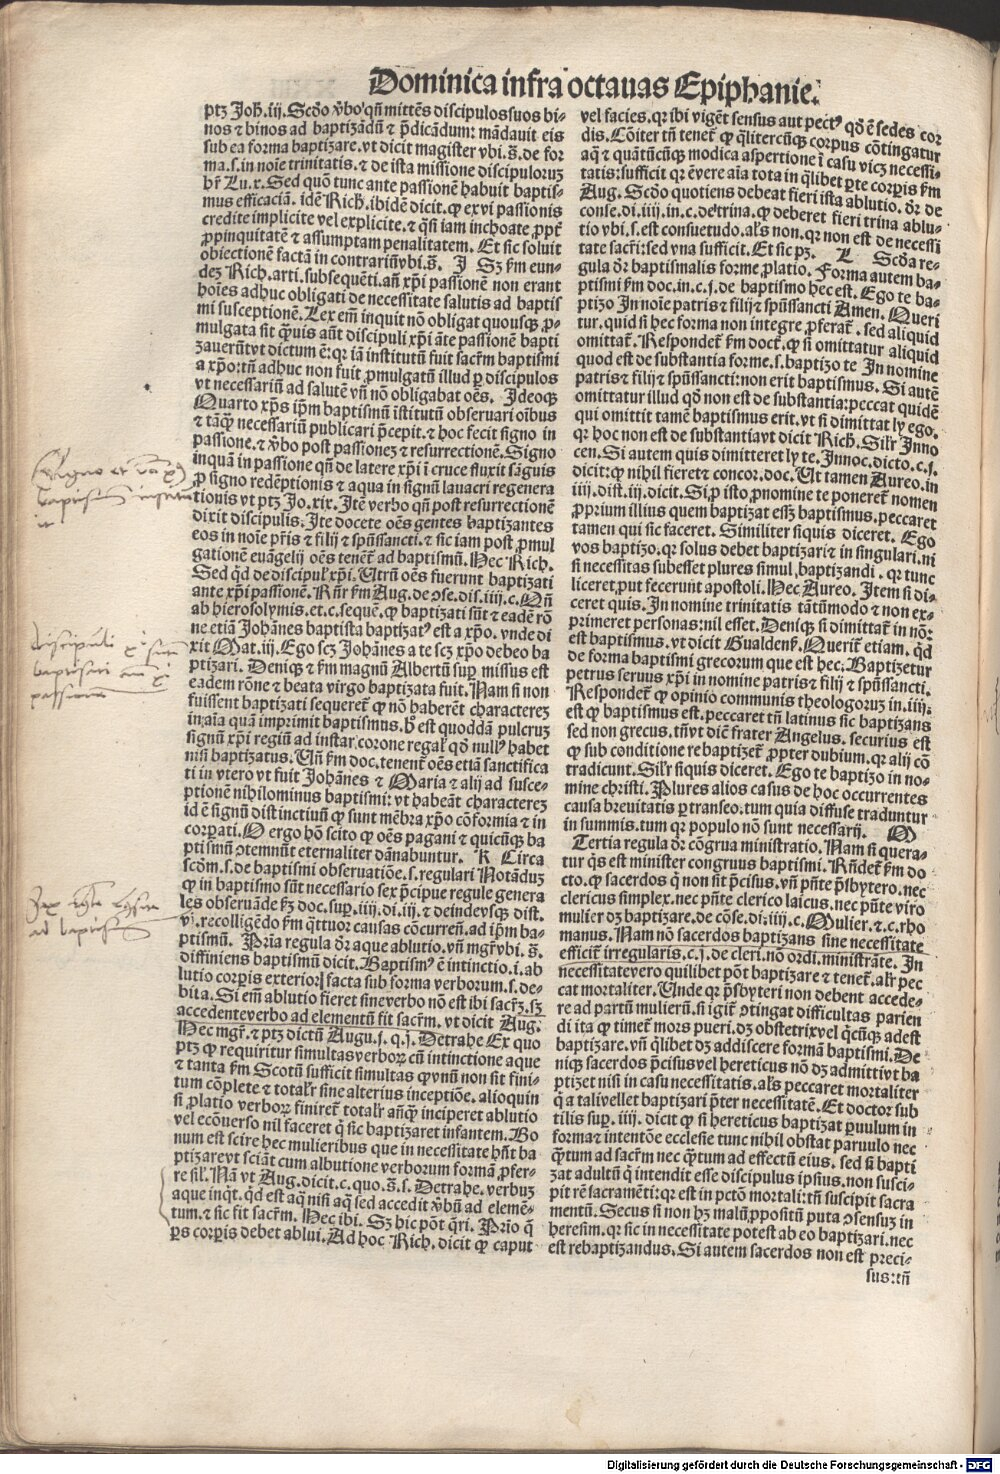 Dominica infra octauas Epiphanie.
ptꝫ Joh̄. iij. Scd̄o v̄bo qn̄ mittēs discipulos suos bi-
nos ⁊ binos ad baptizādū ⁊ p̄dicādum: mādauit eis
sub ea forma baptizare. vt dicit magister vbi. s̄. de for
ma. s. in noīe trinitatis. ⁊ de ista missione discipuloꝝ
hr̄ Lu. x. Sed quō tunc ante passionē habuit baptis-
mus efficaciā. idē Rich̄. ibidē dicit. ꝙ ex vi passionis
credite implicite vel explicite. ⁊ q̄si iam inchoate ꝓpt̄
ꝓpinquitatē ⁊ assumptam penalitatem. Et sic soluit
obiectionē factā in contrariū vbi. s̄. J Sꝫ ẜm eun-
deꝫ Rich. arti. subsequēti. añ xp̄i passionē non erant
hoīes adhuc obligati de necessitate salutis ad baptis
mi susceptionē. Lex em̄ inquit nō obligat quousqꝫ ꝓ-
mulgata sit q̄uis aūt discipuli xp̄i āte passionē bapti
zauerūt vt dictum ē: qr iā institutū fuit sacr̄m baptismi
a xp̄o: tn̄ adhuc non fuit ꝓmulgatū illud ꝑ discipulos
vt necessariū ad salutē vn̄ nō obligabat oēs. Jdeoqꝫ
Quarto xp̄s ip̄m baptismū īstitutū obseruari oībus
⁊ tāqꝫ necessariū publicari p̄cepit. ⁊ hoc fecit signo in
passione. ⁊ v̄bo post passioneꝫ ⁊ resurrectionē. Signo
inquā in passione qn̄ de latere xp̄i ī cruce fluxit sāguis
ꝓ signo redēptionis ⁊ aqua in signū lauacri regenera
tionis vt ptꝫ Jo. xix. Jtē verbo qn̄ post resurrectionē
dixit discipulis. Jte docete oēs gentes baptizantes
eos in noīe pr̄is ⁊ filij ⁊ spūssancti. ⁊ sic iam post ꝓmul
gationē euāgelij oēs tenet̄ ad baptismū. Hec Rich.
Sed qd̄ de discipul̄ xp̄i. Utrū oēs fuerunt baptizati
ante xp̄i passionē. Rn̄r ẜm Aug. de ɔse. dis. iiij. c. Qn̄
ab hierosolymis. et. c. sequē. ꝙ baptizati sūt ⁊ eadē rō
ne etiā Johānes baptista baptizatꝰ est a xp̄o. vnde di
xit Mat. iij. Ego scꝫ Johānes a te scꝫ xp̄o debeo ba
ptizari. Deniqꝫ ⁊ ẜm magnū Albertū sup missus est
eadem rōne ⁊ beata virgo baptizata fuit. Nam si non
fuissent baptizati sequeret̄ ꝙ nō haberēt caractereꝫ
in aīa quā imprimit baptismus. h̄ est quoddā pulcruꝫ
signū xp̄i regiū ad instar corone regal̄ qd̄ nullꝰ habet
nisi baptizatus. Un̄ ẜm doc. tenent̄ oēs etiā sanctifica
ti in vtero vt fuit Johānes ⁊ Maria ⁊ alij ad susce-
ptionē nihilominus baptismi: vt habeāt charactereꝫ
id ē signū distinctiuū ꝙ sunt mēbra xp̄o cōformia ⁊ in
corpati. O ergo hō scito ꝙ oēs pagani ⁊ quicūqꝫ ba
ptismū ɔtemnūt eternaliter dānabuntur. K Circa
scd̄m. s. de baptismi obseruatiōe. s. regulari Notāduꝫ
ꝙ in baptismo sūt necessario sex p̄cipue regule genera
les obseruāde ẜꝫ doc. sup. iiij. di. iij. ⁊ deinde vsqꝫ dist.
vj. recolligēdo ẜm q̄ttuor causas cōcurren̄. ad ip̄m ba-
ptismū. Pria regula dr̄ aque ablutio. vn̄ mgr̄ vbi. s̄.
diffiniens baptismū dicit. Baptismꝰ ē intinctio. i. ab
lutio corpis exterior facta sub forma verborum. s. de-
bita. Si em̄ ablutio fieret sine verbo nō est ibi sacr̄ꝫ. sꝫ
accedente verbo ad elementū fit sacr̄m. vt dicit Aug.
Hec mgr̄. ⁊ ptꝫ dictū Augu. j. q. j. Detrahe Ex quo
ptꝫ ꝙ requiritur simultas verboꝝ cū intinctione aque
⁊ tanta ẜm Scotū sufficit simultas ꝙ vnū non sit fini-
tum cōplete ⁊ total̄r sine alterius inceptiōe. alioquin
si ꝓlatio verboꝝ finiret̄ total̄r añꝙ inciperet ablutio
vel ecōuerso nil faceret q̄ sic baptizaret infantem. Bo
num est scire hec mulieribus que in necessitate hn̄t ba
ptizare vt sciāt cum albutione verborum formā ꝓfer-
re sil̄. Nā vt Aug. dicit. c. quo. s̄. s. Detrahe. verbuꝫ
aque inqt. qd̄ est aq̄ nisi aq̄ sed accedit v̄bū ad elemē-
tum. ⁊ sic fit sacr̄m. Hec ibi. Sꝫ hic pōt q̄ri. Prio q̄
ꝑs corpis debet ablui. Ad hoc Rich. dicit ꝙ caput
vel facies. qr ibi vigēt sensus aut pectꝰ qd̄ ē sedes cor
dis. Cōiter tn̄ tenet̄ ꝙ q̄litercūqꝫ corpus cōtingatur
aq̄ ⁊ quātūcūqꝫ modica aspertione ī casu vicꝫ necessi-
tatis: sufficit qr ēvere aīa tota in q̄libet ꝑte corpis ẜm
Aug. Scd̄o quotiens debeat fieri ista ablutio. dr̄ de
conse. di. iiij. in. c. de trina. ꝙ deberet fieri trina ablu-
tio vbi. s. est consuetudo. als̄ non. qr non est de necessi
tate sacr̄i: sed vna sufficit. Et sic pꝫ. L Scd̄a re-
gula dr̄ baptismalis forme ꝓlatio. Forma autem ba-
ptismi ẜm doc. in. c. j. de baptismo hec est. Ego te ba-
ptizo Jn noīe patris ⁊ filij ⁊ spūssancti Amen. Queri
tur. quid si hec forma non integre ꝓferat̄. sed aliquid
omittat̄. Respondet̄ ẜm doct̄. ꝙ si omittatur aliquid
quod est de substantia forme. s. baptizo te Jn nomine
patris ⁊ filij ⁊ spūssancti: non erit baptismus. Si autē
omittatur illud qd̄ non est de substantia: peccat quidē
qui omittit tamē baptismus erit. vt si dimittat ly ego.
qr hoc non est de substantia vt dicit Rich̄. Sil̄r Jnno
cen. Si autem quis dimitteret ly te. Jnnoc. dicto. c. j.
dicit: ꝙ nihil fieret ⁊ concor. doc. Ut tamen Aureo. in
iiij. dist. iij. dicit. Si ꝓ isto ꝓnomine te poneret̄ nomen
ꝓprium illius quem baptizat esset baptismus. peccaret
tamen qui sic faceret. Similiter siquis diceret. Ego
vos baptizo. qr solus debet baptizari ⁊ in singulari. ni
si necessitas subesset plures simul baptizandi. qr tunc
liceret ꝓut fecerunt apostoli. Hec Aureo. Jtem si di-
ceret quis. Jn nomine trinitatis tātūmodo ⁊ non ex-
primeret personas: nil esset. Deniqꝫ si dimittat̄ in nōe
est baptismus. vt dicit Gualdens̄. Querit̄ etiam. qd̄
de forma baptismi grecorum que est hec. Baptizetur
petrus seruus xp̄i in nomine patris ⁊ filij ⁊ spūssancti.
Respondet̄ ꝙ opinio communis theologoruꝫ in. iiij.
est ꝙ baptismus est. peccaret tn̄ latinus sic baptizans
sed non grecus. tn̄ vt dic̄ frater Angelus. securius est
ꝙ sub conditione rebaptizet̄ ꝓpter dubium. qr alij cō
tradicunt. Sil̄r siquis diceret. Ego te baptizo in no-
mine christi. Plures alios casus de hoc occurrentes
causa breuitatis ꝑtranseo. tum quia diffuse traduntur
in summis. tum qr populo nō sunt necessarij. M
Tertia regula dr̄ cōgrua ministratio. Nam si quera-
tur q̄s est minister congruus baptismi. Rn̄det̄ ẜm do
cto. ꝙ sacerdos q̄ non sit p̄cisus. vn̄ pn̄te p̄sbytero. nec
clericus simplex. nec pn̄te clerico laicus. nec pn̄te viro
mulier dꝫ baptizare. de cōse. di. iiij. c. Mulier. ⁊. c. rho
manus. Nam nō sacerdos baptizans sine necessitate
efficit̄ irregularis. c. j. de cleri. nō ordi. ministrāte. Jn
necessitate vero quilibet pōt baptizare ⁊ tenet̄. al̄r pec
cat mortaliter. Unde qr p̄sbyteri non debent accede-
re ad partū mulierū. si igit̄ ɔtingat difficultas parien
di ita ꝙ timet̄ mors pueri. dꝫ obstetrix vel q̄cūqꝫ adest
baptizare. vn̄ q̄libet dꝫ addiscere formā baptismi. De
niqꝫ sacerdos p̄cisus vel hereticus nō dꝫ admitti vt ba
ptizet nisi in casu necessitatis. als̄ peccaret mortaliter
q̄ a tali vellet baptizari p̄ter necessitatē. Et doctor sub
tilis sup. iiij. dicit ꝙ si hereticus baptizat ꝑuulum in
forma ⁊ intentōe ecclesie tunc nihil obstat paruulo nec
q̄tum ad sacr̄m nec q̄tum ad effectū eius. sed si bapti
zat adultū q̄ intendit esse discipulus ipsius. non susci-
pit rē sacramēti: qr est in pctō mortali: tn̄ suscipit sacra
mentū. Secus si non hꝫ malū ꝓpositū puta ɔsensuꝫ in
heresim. qr sic in necessitate potest ab eo baptizari. nec
est rebaptizandus. Si autem sacerdos non est preci-
sus: tn̄
Discipuli xp̄i sunt
baptisati an̄ xp̄i
passionē
ad baptismū
Digitalisierung gefördert durch die Deutsche Forschungsgemeinschaft - DFG